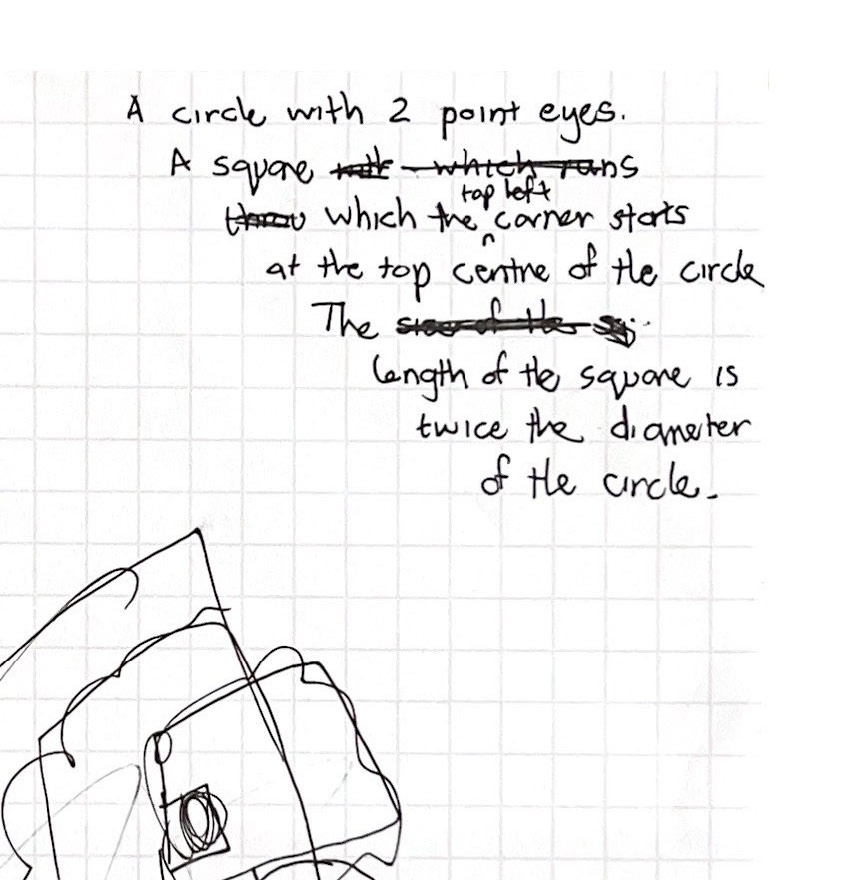 A circle with 2 point eyes.
A square which runs
top left
which the corner starts
at the top centre of the circle
The
length of the square is
twice the diameter
of the circle.